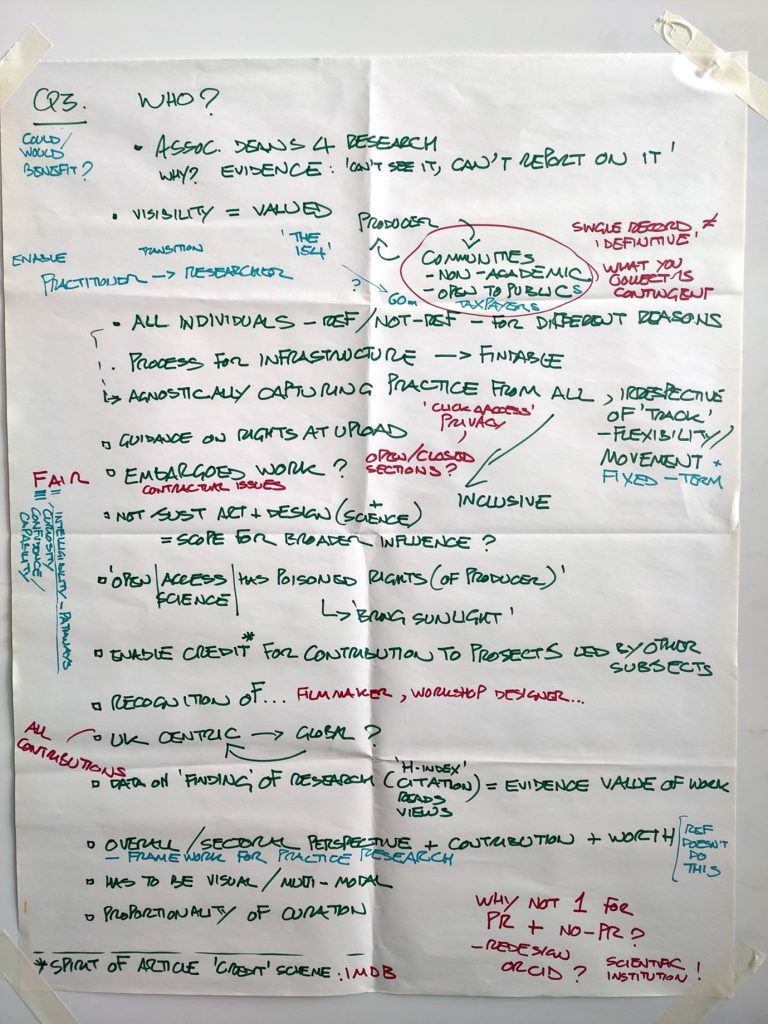 Q3. WHO?
COULD/
WOULD
BENEFIT?
• ASSOC. DEANS 4 RESEARCH
WHY? EVIDENCE: 'CAN'T SEE IT, CAN'T REPORT ON IT'
• VISIBILITY = VALUED
PRODUCER
COMMUNITIES
- NON-ACADEMIC
- OPEN TO PUBLICS
TAXPAYERS
SINGLE RECORD ≠
'DEFINITIVE'
WHAT YOU
COLLECT IS
CONTINGENT
ENABLE TRANSITION
PRACTITIONER → RESEARCHER
'THE
154'
?
60m
• ALL INDIVIDUALS - REF/NOT-REF - FOR DIFFERENT REASONS
• PROCESS FOR INFRASTRUCTURE → FINDABLE
↳ AGNOSTICALLY CAPTURING PRACTICE FROM ALL, IRRESPECTIVE
OF 'TRACK'
- FLEXIBILITY/
MOVEMENT +
FIXED-TERM
'CLICK & ACCESS'
PRIVACY
▫ GUIDANCE ON RIGHTS AT UPLOAD
OPEN/CLOSED
SECTIONS?
▫ EMBARGOED WORK?
CONTRACTUR ISSUES
INCLUSIVE
FAIR
INTELLIGIBILITY - PATHWAYS
/CURIOSITY
CONFIDENCE/
CAPABILITY
▫ NOT JUST ART + DESIGN (+ SCIENCE)
= SCOPE FOR BROADER INFLUENCE?
▫ 'OPEN|ACCESS|HAS POISONED RIGHTS (OF PRODUCER)'
SCIENCE
↳ 'BRING SUNLIGHT'
▫ ENABLE CREDIT* FOR CONTRIBUTION TO PROJECTS LED BY OTHER
SUBJECTS
▫ RECOGNITION OF... FILMMAKER, WORKSHOP DESIGNER...
ALL
CONTRIBUTIONS
▫ UK CENTRIC → GLOBAL?
▫ DATA ON 'FINDING' OF RESEARCH ('H-INDEX'
CITATION) = EVIDENCE VALUE OF WORK
READS
VIEWS
▫ OVERALL/SECTORAL PERSPECTIVE + CONTRIBUTION + WORTH
- FRAMEWORK FOR PRACTICE RESEARCH
REF
DOESN'T
DO
THIS
▫ HAS TO BE VISUAL/MULTI-MODAL
▫ PROPORTIONALITY OF CURATION
WHY NOT 1 FOR
PR + NO-PR?
- REDESIGN
ORCID?
SCIENTIFIC
INSTITUTION!
*SPIRIT OF ARTICLE 'CREDIT' SCHEME: IMDB